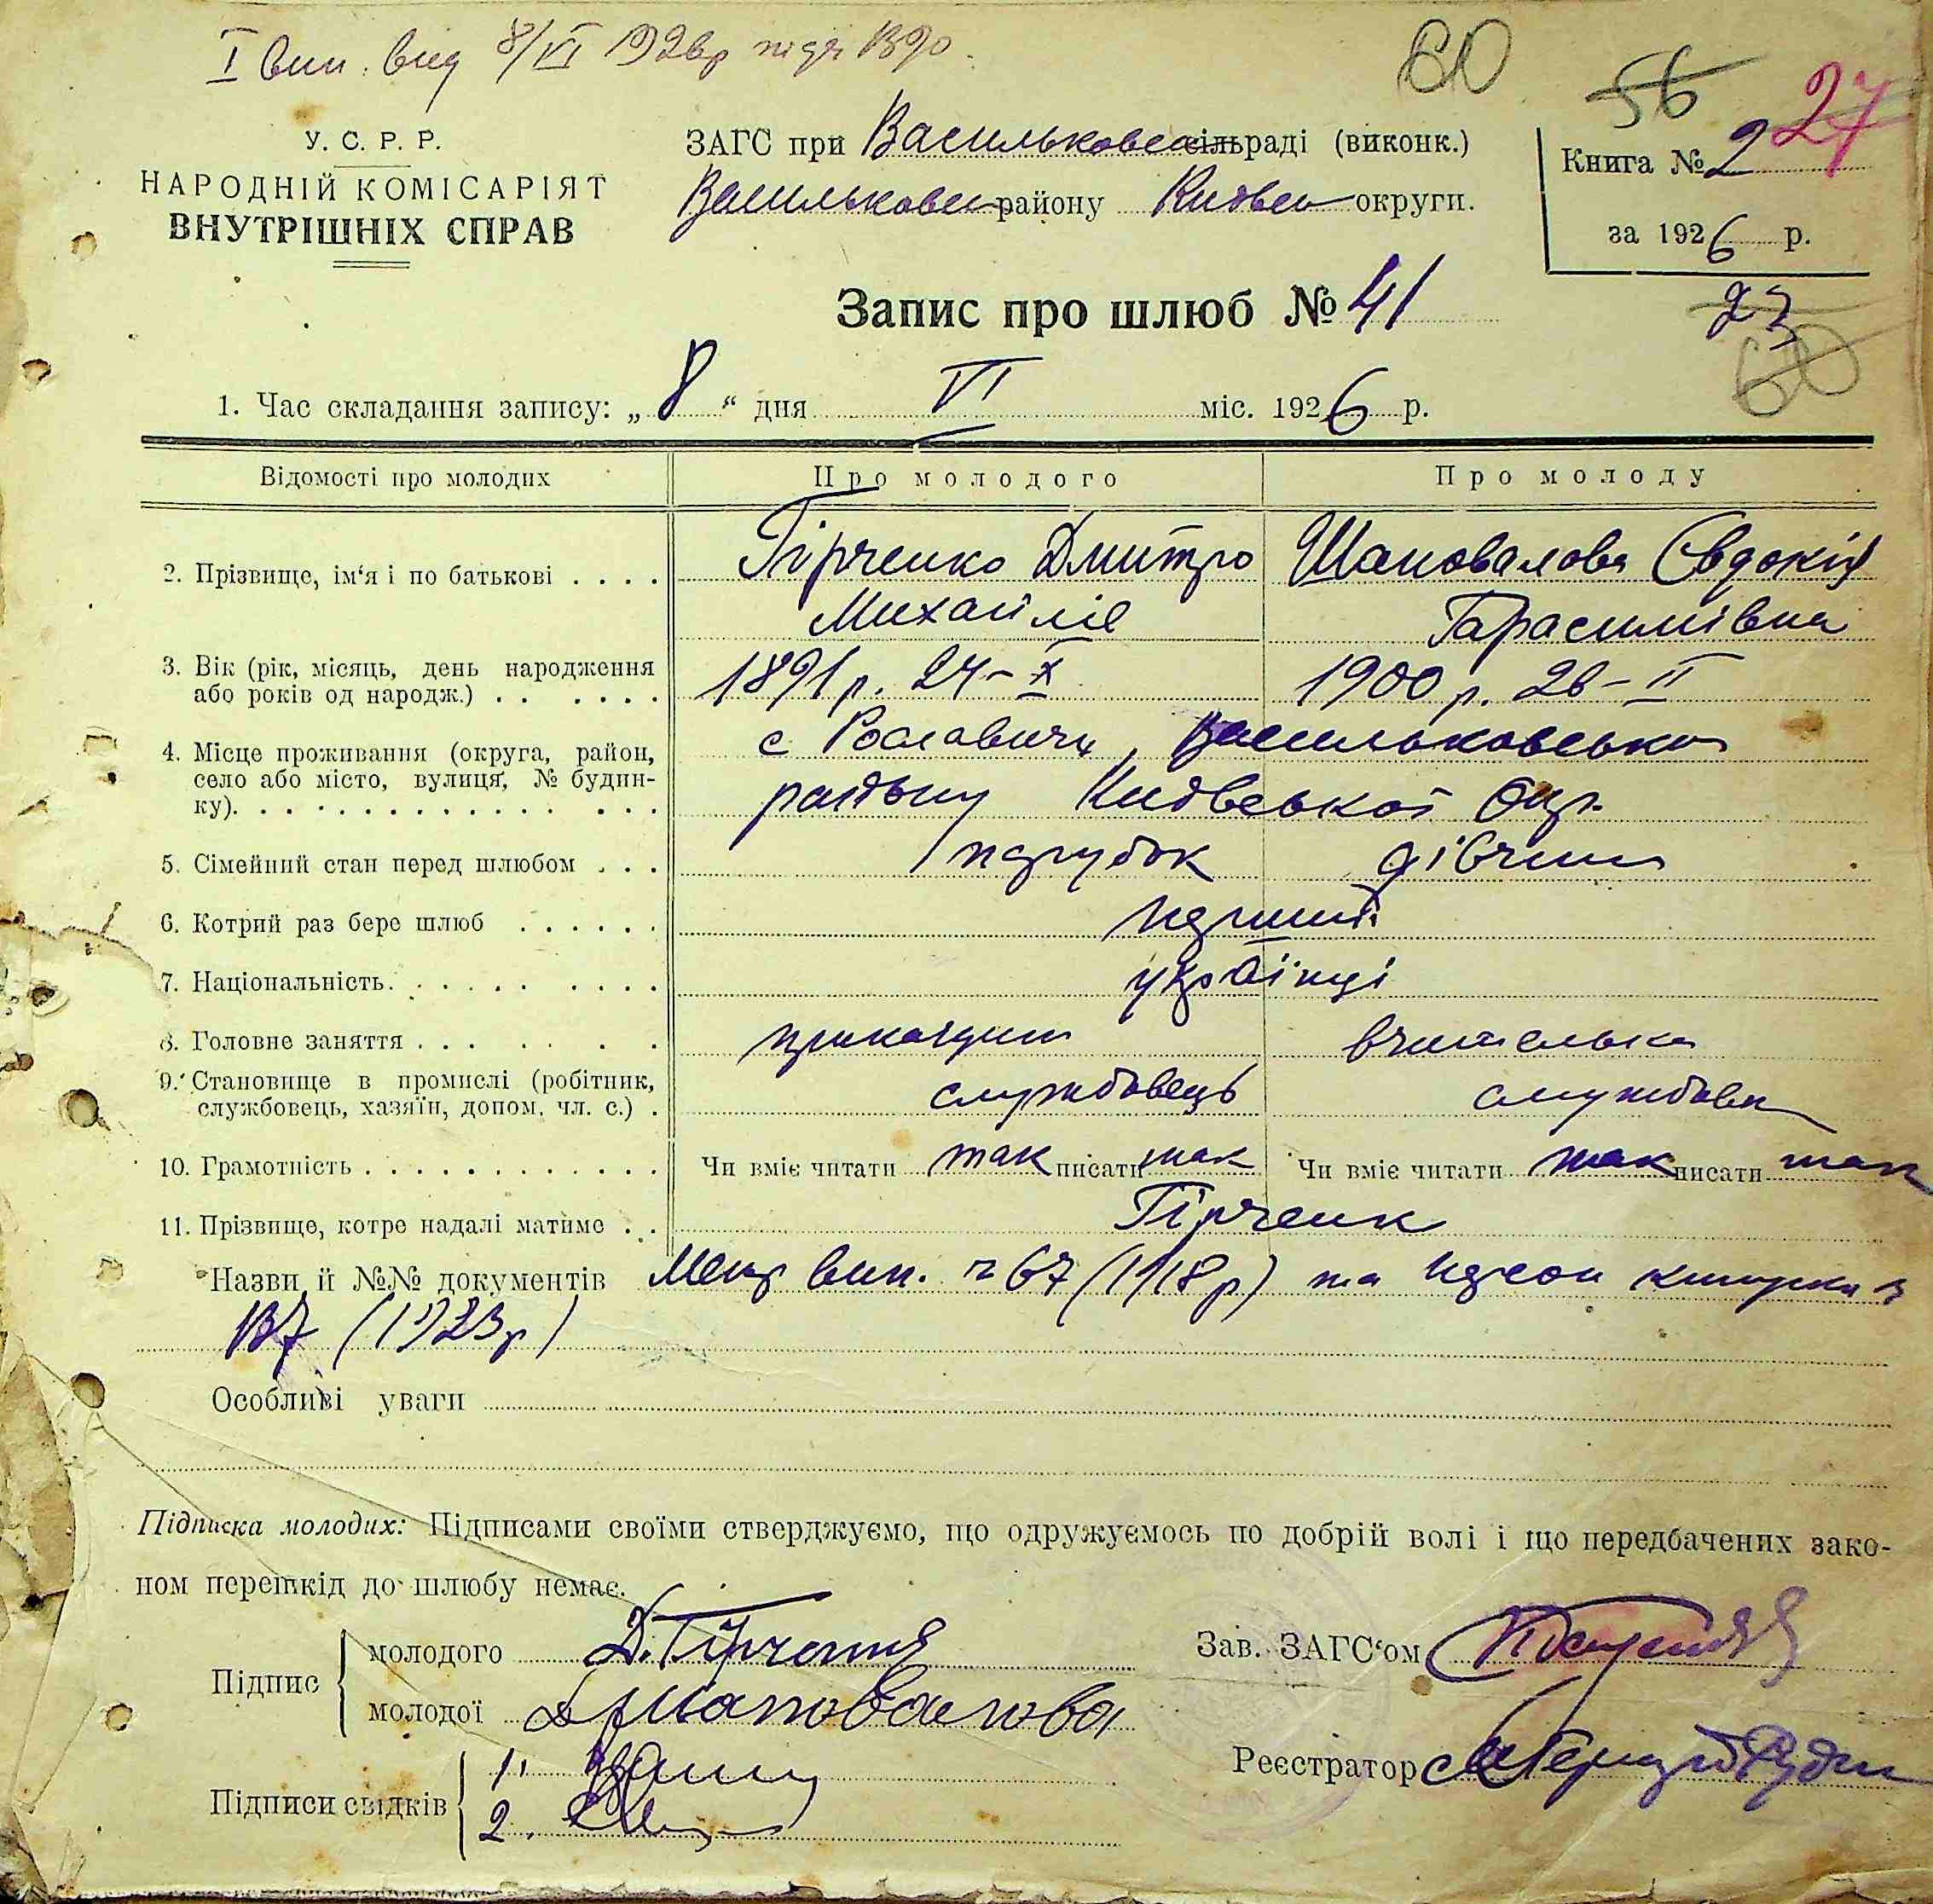 I вип. від 8/VI 1926р
60
56
27
У. С. Р. Р.
НАРОДНІЙ КОМІСАРІЯТ
ВНУТРІШНІХ СПРАВ
ЗАГС при Васильковськ сільраді (виконк.)
Васильковськ району Київськ округи.
Книга № 2
за 1926 р.
Запис про шлюб № 41
23
60
1. Час складання запису: „ 8 “ дня VI міс. 1926 р.
Відомості про молодих
Про молодого
Про молоду
2. Прізвище, ім‘я і по батькові . . . .
Гірченко Дмитро
Михайлів
Шаповалова Євдокія
Гарасимівна
3. Вік (рік, місяць, день народження
або років од народж.) . . . . . .
1891 р. 24-X
1900 р. 26-II
4. Місце проживання (округа, район,
село або місто, вулиця, № будин-
ку). . . . . . . . . . . . . . . .
с Рославичи, Васильковсько
району Київської Окр.
5. Сімейний стан перед шлюбом . . .
парубок
дівчина
6. Котрий раз бере шлюб . . . . . .
перший
7. Національність. . . . . . . . . .
українці
8. Головне заняття . . . . . . .
вчителька
9. Становище в промислі (робітник,
службовець, хазяїн, допом. чл. с.) .
службовець
службовк
10. Грамотність . . . . . . . . . . . .
Чи вміє читати так писати так
Чи вміє читати так писати так
11. Прізвище, котре надалі матиме . .
Гірченк
Назви й №№ документів Метр вип. ч 67 (1918 р) та
137 (1923 р)
Особливі уваги
Підписка молодих: Підписами своїми стверджуємо, що одружуємось по добрій волі і що передбачених зако-
ном перешкід до шлюбу немає.
Підпис
молодого Д. Гірченко
молодої Шаповалова
Зав. ЗАГС‘ом
Реєстратор
Підписи свідків
1.
2.